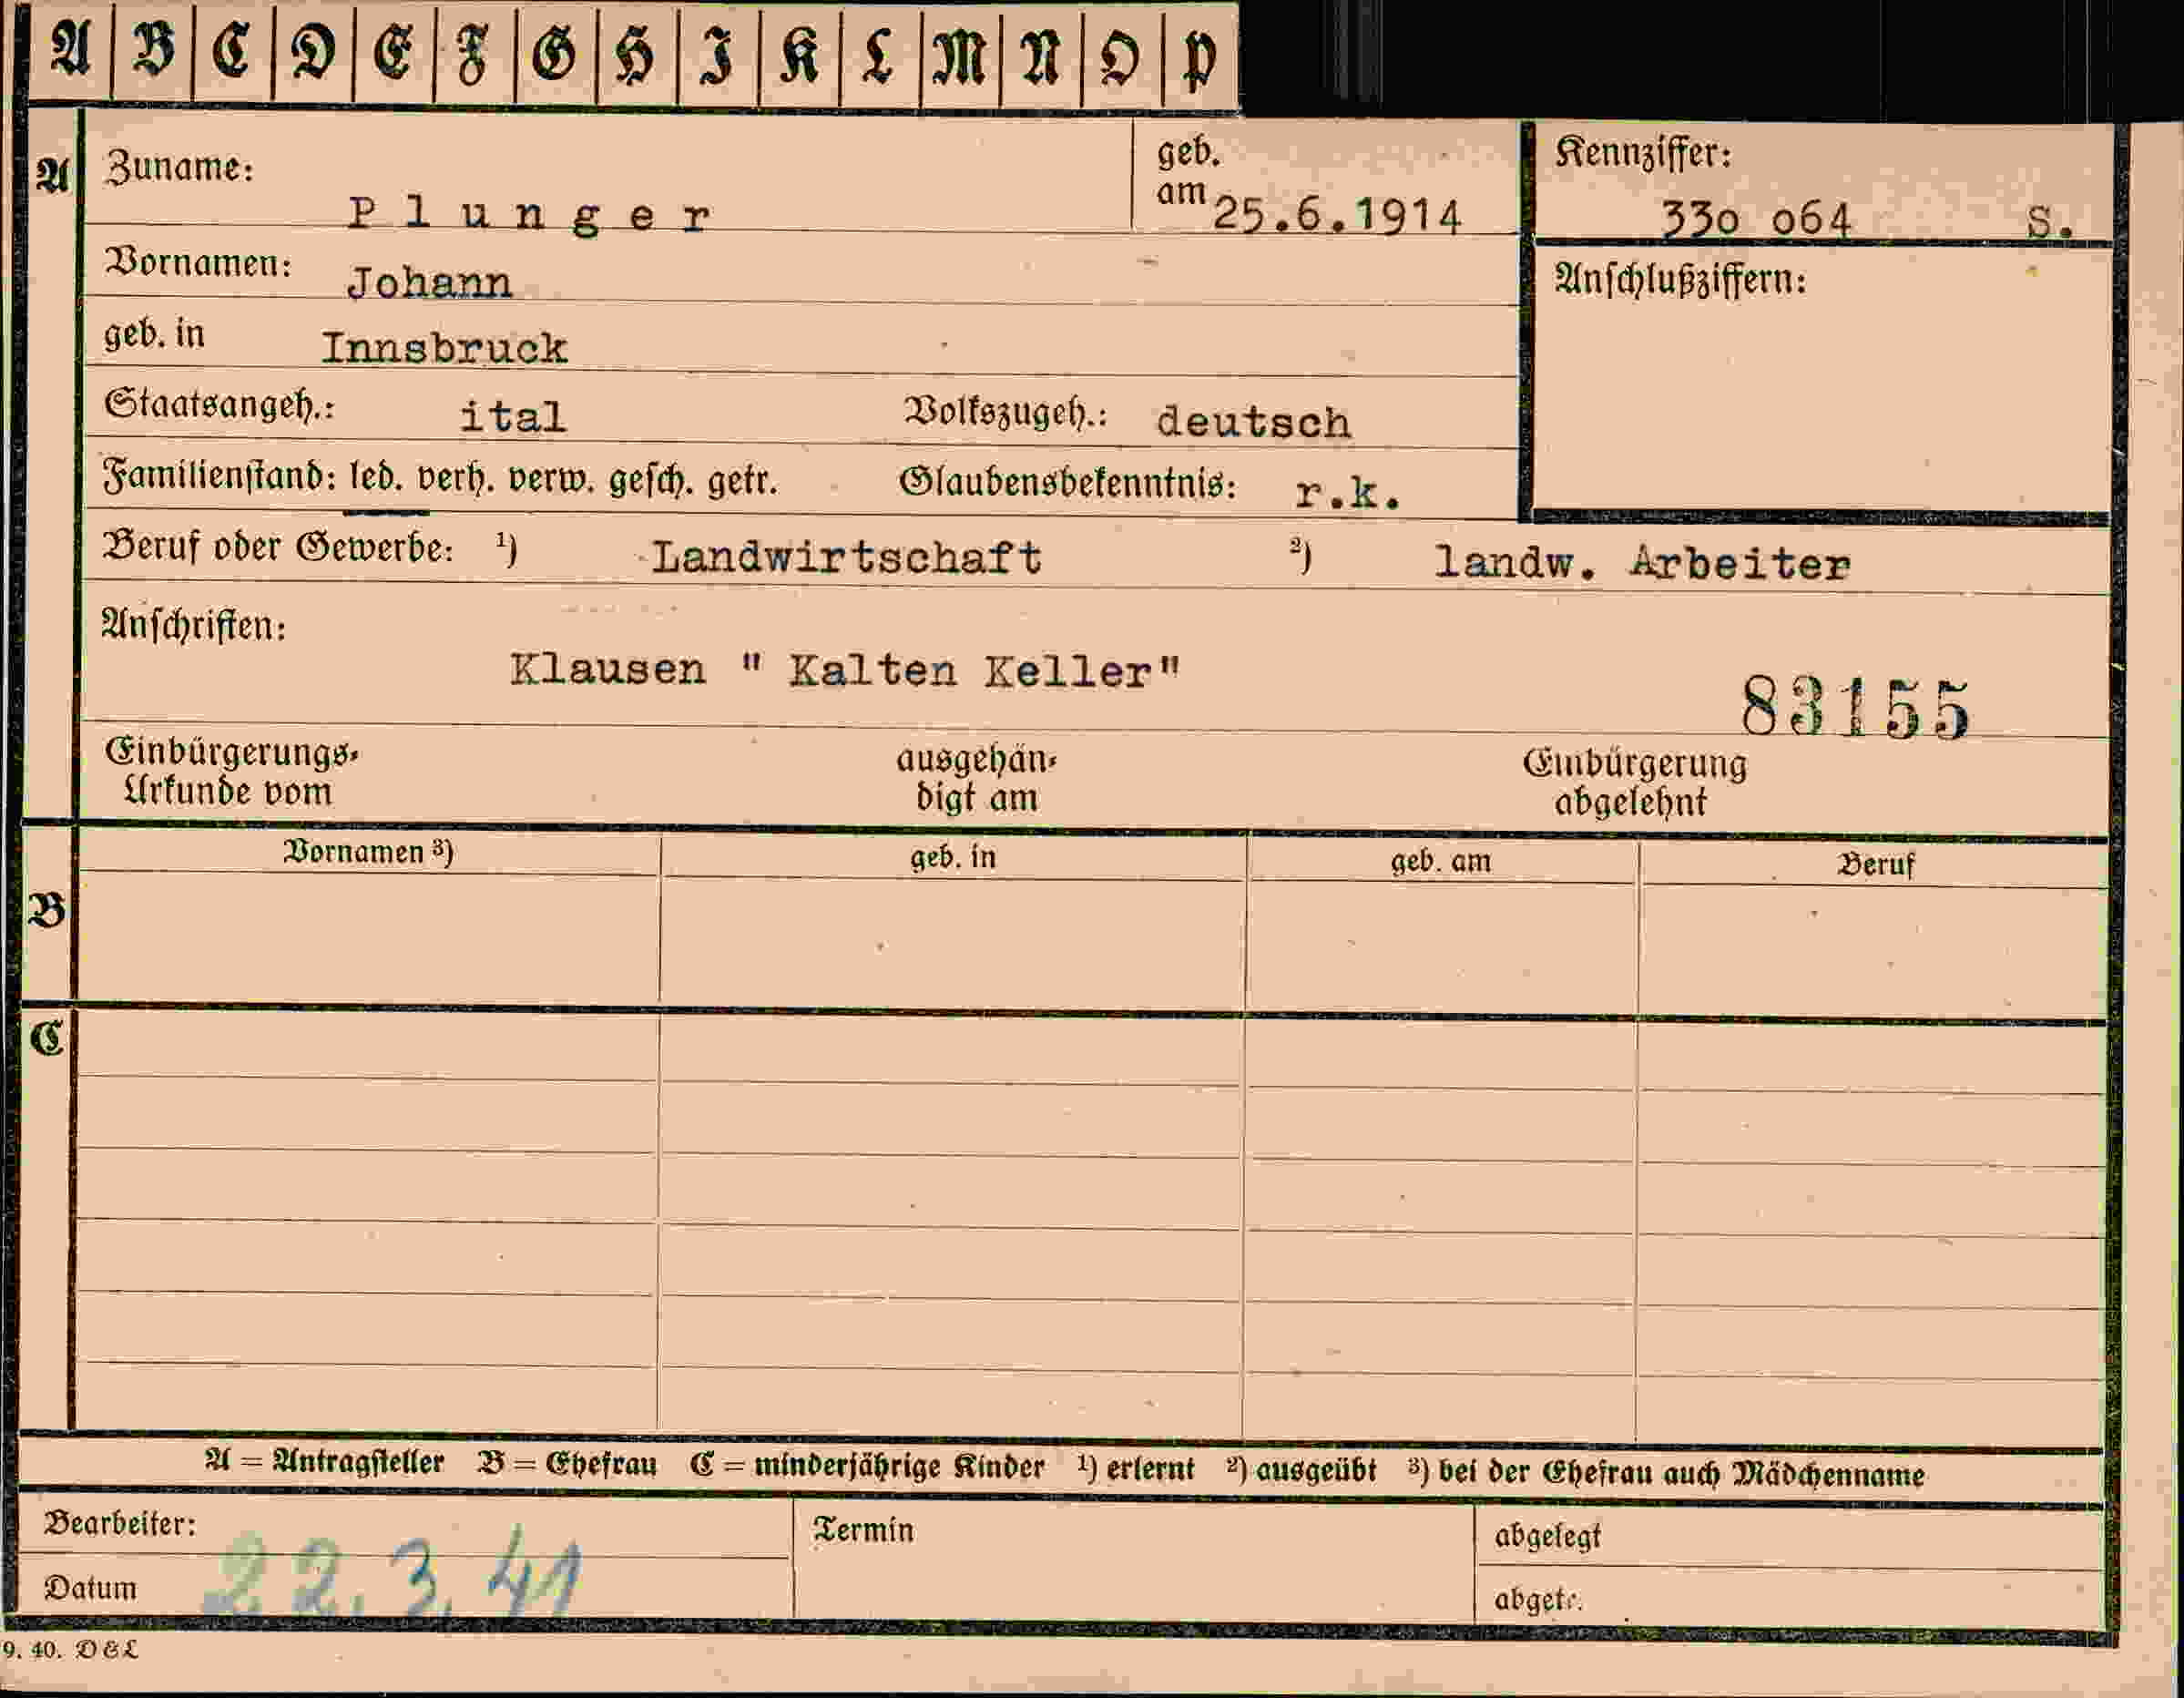 A B C D E F G H I K L M N O P
A Zuname: P l u n g e r geb. am 25.6.1914 Kennziffer: 33o o64 S.
Vornamen: Johann Anschlußziffern:
geb. in Innsbruck
Staatsangeh.: ital Volkszugeh.: deutsch
Familienstand: led. verh. verw. gesch. getr. Glaubensbekenntnis: r.k.
Beruf oder Gewerbe: ¹) Landwirtschaft ²) landw. Arbeiter
Anschriften:
Klausen " Kalten Keller"
83155
Einbürgerungs- ausgehän- Einbürgerung
Urkunde vom digt am abgelehnt
Vornamen ³) geb. in geb. am Beruf
B
C
A = Antragsteller B = Ehefrau C = minderjährige Kinder ¹) erlernt ²) ausgeübt ³) bei der Ehefrau auch Mädchenname
Bearbeiter: Termin abgelegt
Datum 22.3.41 abgetr.
9. 40. D & L